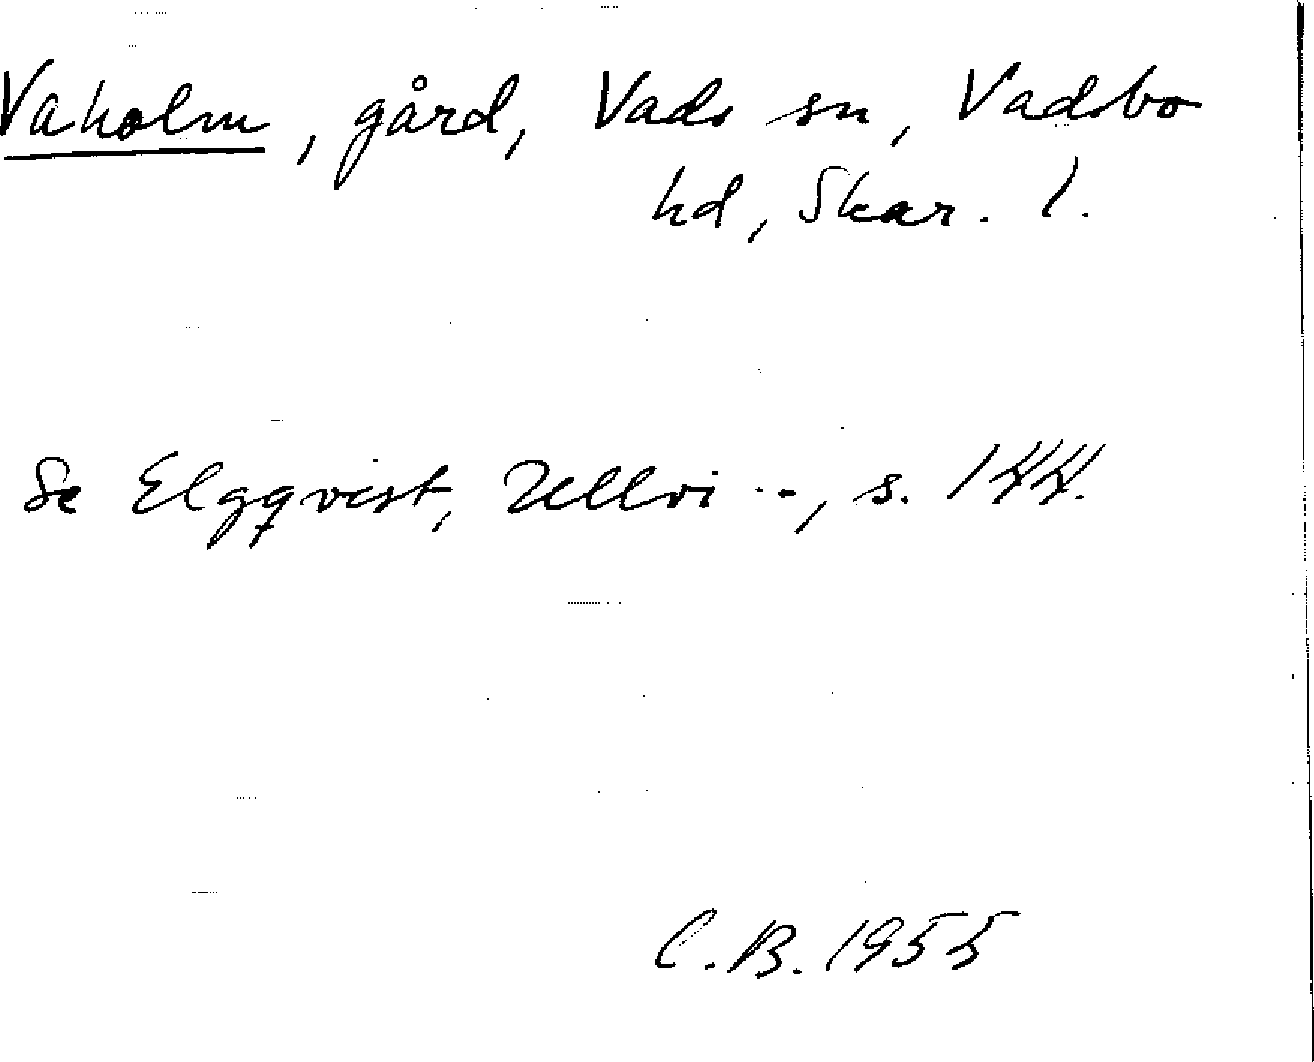 Vaholm, gård, Vads sn, Vadsbo
hd, Skar. l.
Se Elgqvist, Ullvi .., s. 144.
C.B. 1955